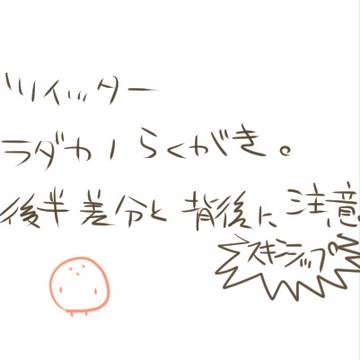 ツイッター
ラダカノらくがき。
後半差分と背後に注意。
スキンシップ